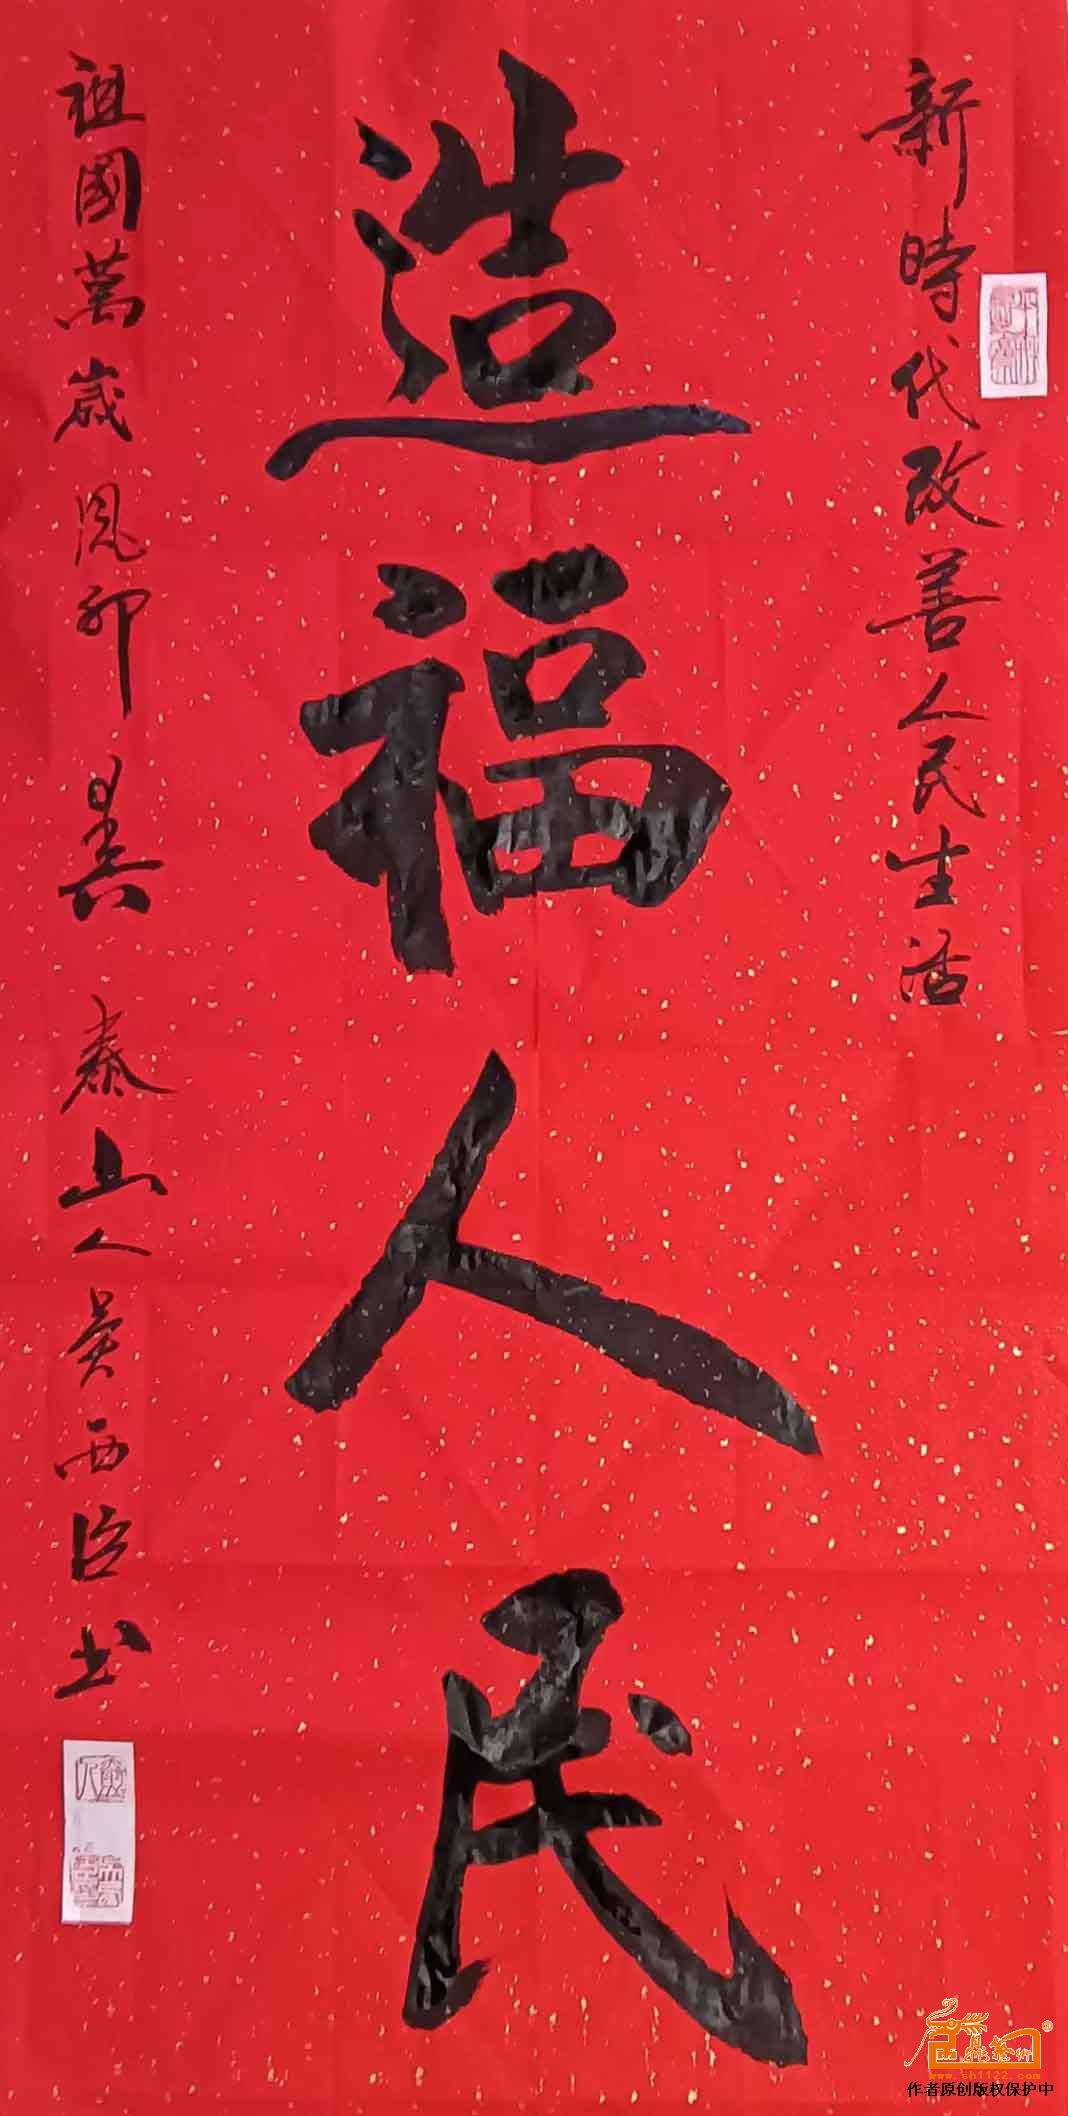 新時代改善人民生活
造福人民
祖國萬歲 泰山人 西臣书
www.sh1122.com
作者原创版权保护中